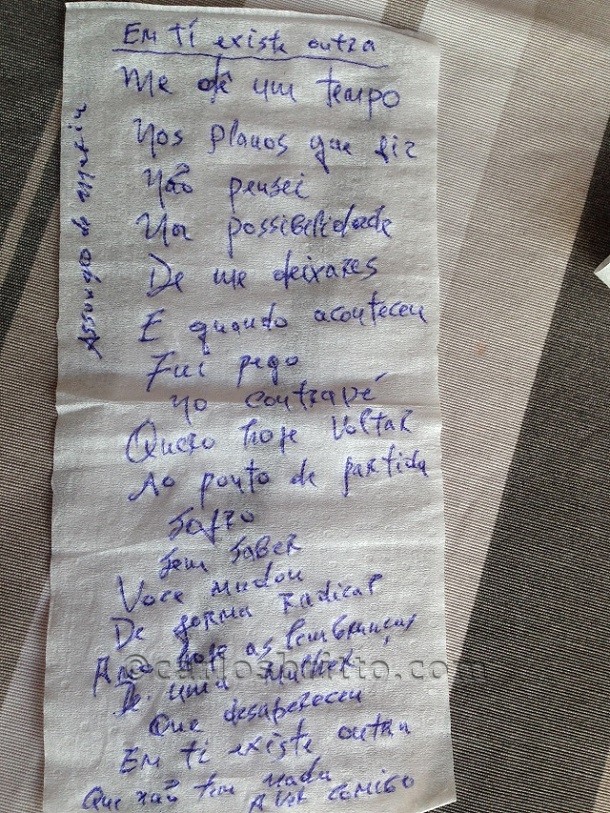 Em ti existe outra
Me dê um tempo
Nos planos que fiz
Não pensei
Na possibilidade
De me deixares
E quando aconteceu
Fui pego
No contrapé
Quero hoje voltar
Ao ponto de partida
Sofro
Sem saber
Voce mudou
De forma radical
Amo hoje as lembranças
De uma mulher
Que desapereceu
Em ti existe outra
Que não tem nada
A ver comigo
@carlosbritto.com